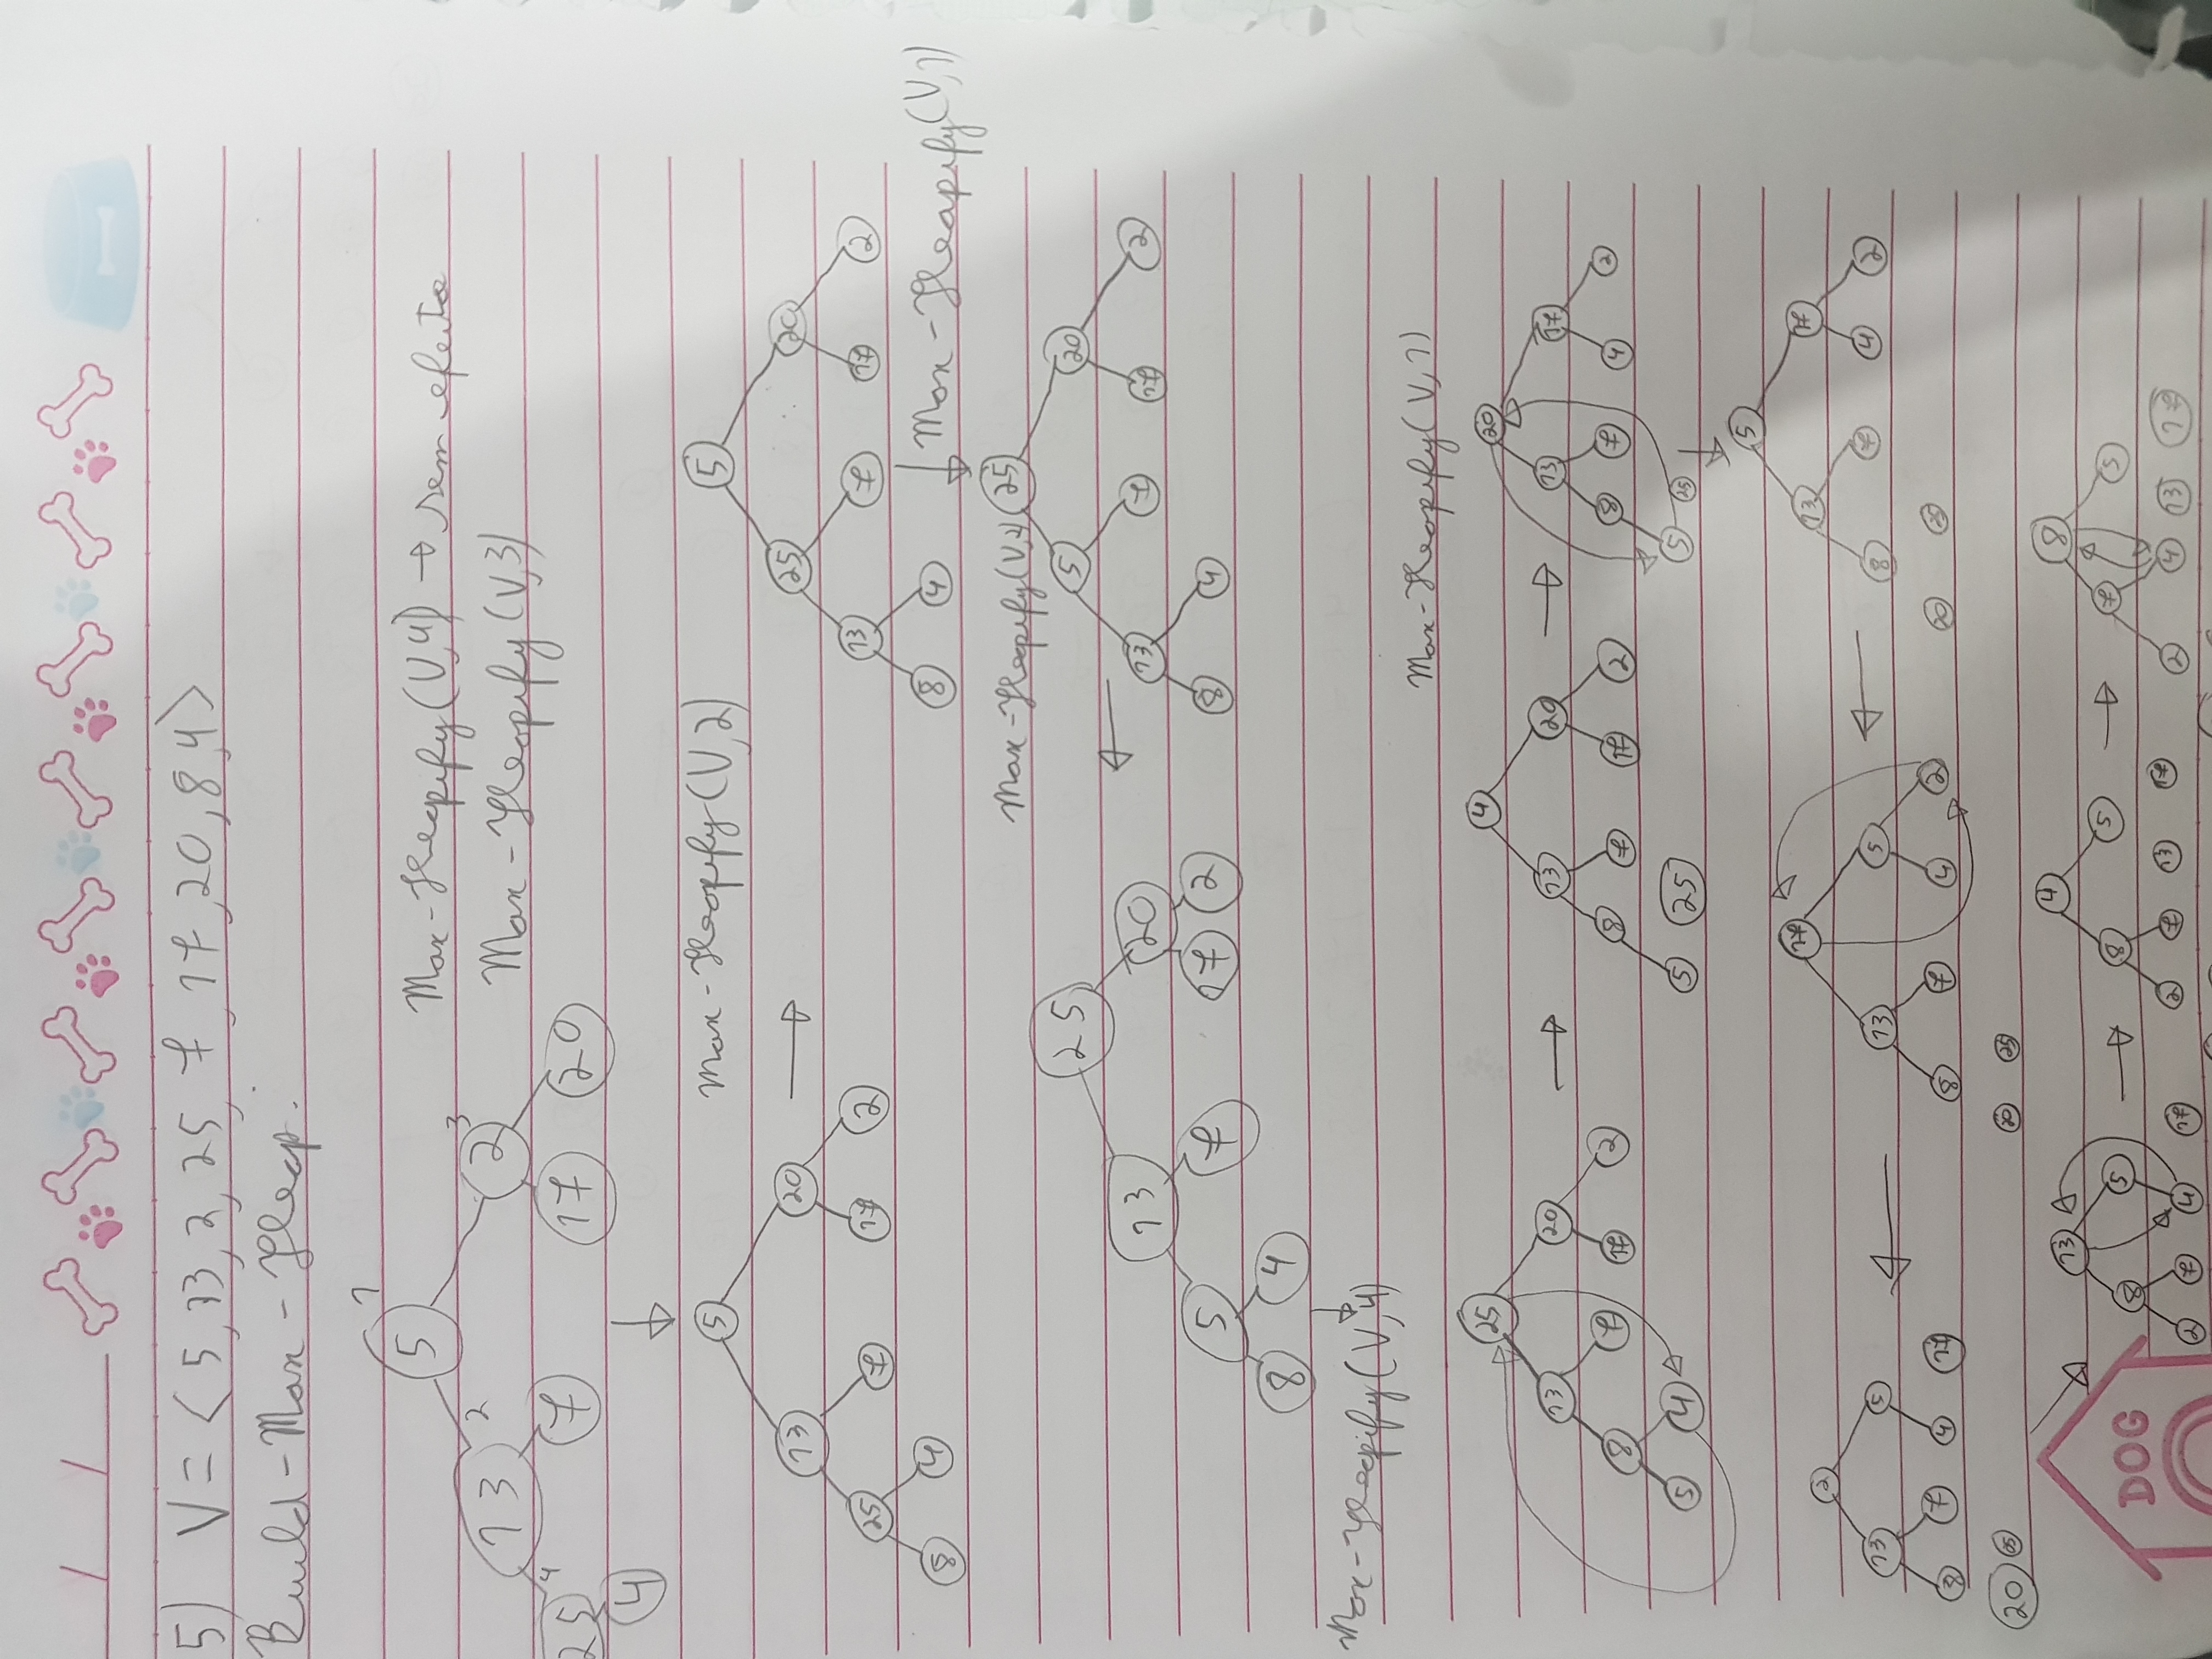 / /
5) V = < 5, 13, 2, 25, 7, 17, 20, 8, 4 >
Build-Max-Heap:
5 1
13 2 2 3
25 4 7 17 20
4
Max-Heapify (V,4) → sem efeito
Max-Heapify (V,3)
5
13 20
25 7 17 2
8 4
Max-Heapify (V,2)
5
25 20
13 7 17 2
8 4
Max-Heapify (V,1)
25
5 20
13 7 17 2
8 4
Max-Heapify (V,2)
25
13 20
5 7 17 2
8 4
Max-Heapify (V,4)
25
13 20
8 7 17 2
5 4
4
13 20
8 7 17 2
5 25
Max-Heapify (V,1)
20
13 17
8 7 4 2
5 25
5
13 17
8 7 4 2
20 25
17
13 5
8 7 4 2
20 25
2
13 5
8 7 4 17
20 25
13
8 5
2 7 4 17
4
8 5
2 7 13 17
8
7 5
2 4 13 17
DOG